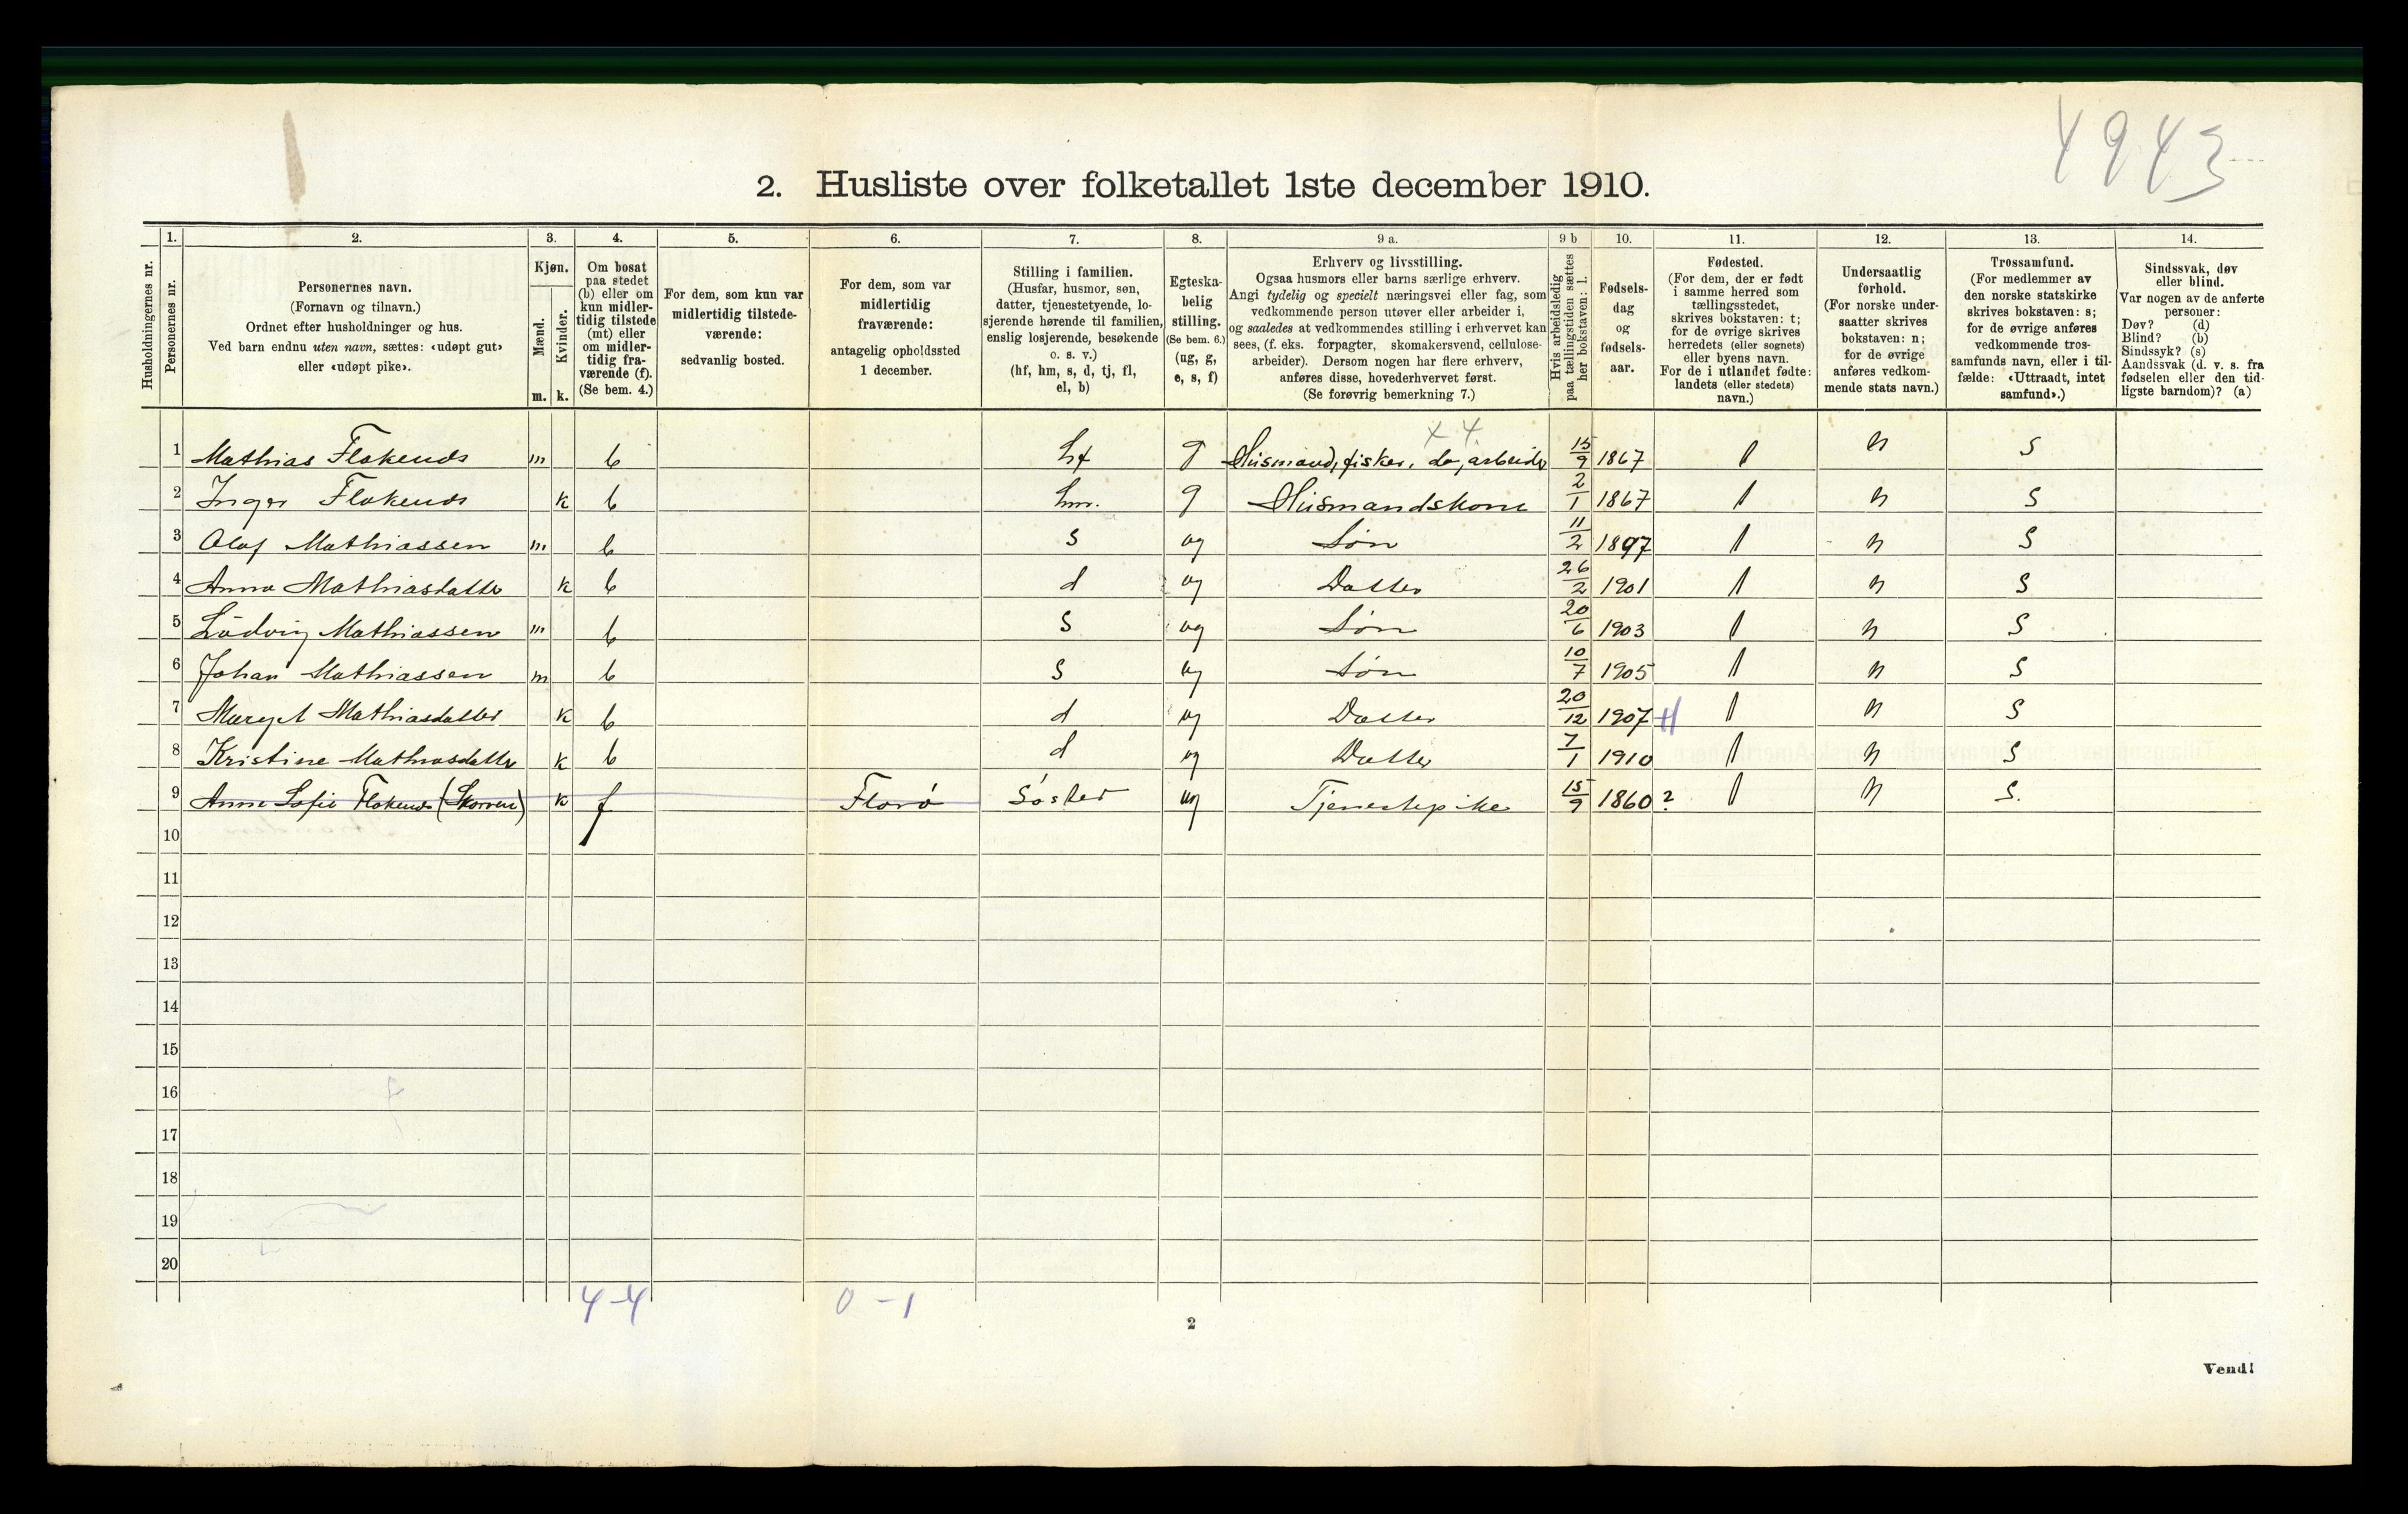 4943
2. Husliste over folketallet 1ste december 1910.
Husholdningernes nr.
1.
Personernes nr.
2.
Personernes navn.
(Fornavn og tilnavn.)
Ordnet efter husholdninger og hus.
Ved barn endnu uten navn, sættes: «udøpt gut»
eller «udøpt pike».
3.
Kjøn.
Mænd.
Kvinder.
m. k.
4.
Om bosat
paa stedet
(b) eller om
kun midler-
tidig tilstede
(mt) eller
om midler-
tidig fra-
værende (f).
(Se bem. 4.)
5.
For dem, som kun var
midlertidig tilstede-
værende:
sedvanlig bosted.
6.
For dem, som var
midlertidig
fraværende:
antagelig opholdssted
1 december.
7.
Stilling i familien.
(Husfar, husmor, søn,
datter, tjenestetyende, lo-
sjerende hørende til familien,
enslig losjerende, besøkende
o. s. v.)
(hf, hm, s, d, tj, fl,
el, b)
8.
Egteska-
belig
stilling.
(Se bem. 6.)
(ug, g,
e, s, f)
9 a.
Erhverv og livsstilling.
Ogsaa husmors eller barns særlige erhverv.
Angi tydelig og specielt næringsvei eller fag, som
vedkommende person utøver eller arbeider i,
og saaledes at vedkommendes stilling i erhvervet kan
sees, (f. eks. forpagter, skomakersvend, cellulose-
arbeider). Dersom nogen har flere erhverv,
anføres disse, hovederhvervet først.
(Se forøvrig bemerkning 7.)
9 b
Hvis arbeidsledig
paa tællingstiden sættes
her bokstaven: l.
10.
Fødsels-
dag
og
fødsels-
aar.
11.
Fødested.
(For dem, der er født
i samme herred som
tællingsstedet,
skrives bokstaven: t;
for de øvrige skrives
herredets (eller sognets)
eller byens navn.
For de i utlandet fødte:
landets (eller stedets)
navn.)
12.
Undersaatlig
forhold.
(For norske under-
saatter skrives
bokstaven: n;
for de øvrige
anføres vedkom-
mende stats navn.)
13.
Trossamfund.
(For medlemmer av
den norske statskirke
skrives bokstaven: s;
for de øvrige anføres
vedkommende tros-
samfunds navn, eller i til-
fælde: «Uttraadt, intet
samfund».)
14.
Sindssvak, døv
eller blind.
Var nogen av de anførte
personer:
Døv? (d)
Blind? (b)
Sindssyk? (s)
Aandssvak (d. v. s. fra
fødselen eller den tid-
ligste barndom)? (a)
x 4.
1 Mathias Flokenes m b hf g Husmand, fisker, do, arbeider 15/9 1867 t n s
2 Inger Flokenes k b hm. g Husmandskone 2/1 1867 t n s
3 Olaf Mathiassen m b s ug Søn 11/2 1897 t n s
4 Anna Mathiasdatter k b d ug Datter 26/2 1901 t n s
5 Ludvig Mathiassen m b s ug Søn 20/6 1903 t n s
6 Johan Mathiassen m b s ug Søn 10/7 1905 t n s
7 Margit Mathiasdatter k b d ug Datter 20/12 1907 t n s
8 Kristine Mathiasdatter k b d ug Datter 7/1 1910 t n s
9 Anne Sofie Flokenes k f Florø Søster ug Tjenestepike 15/9 1860 ? t n s.
10
11
12
13
14
15
16
17
18
19
20
4-4 0-1
2
Vend!